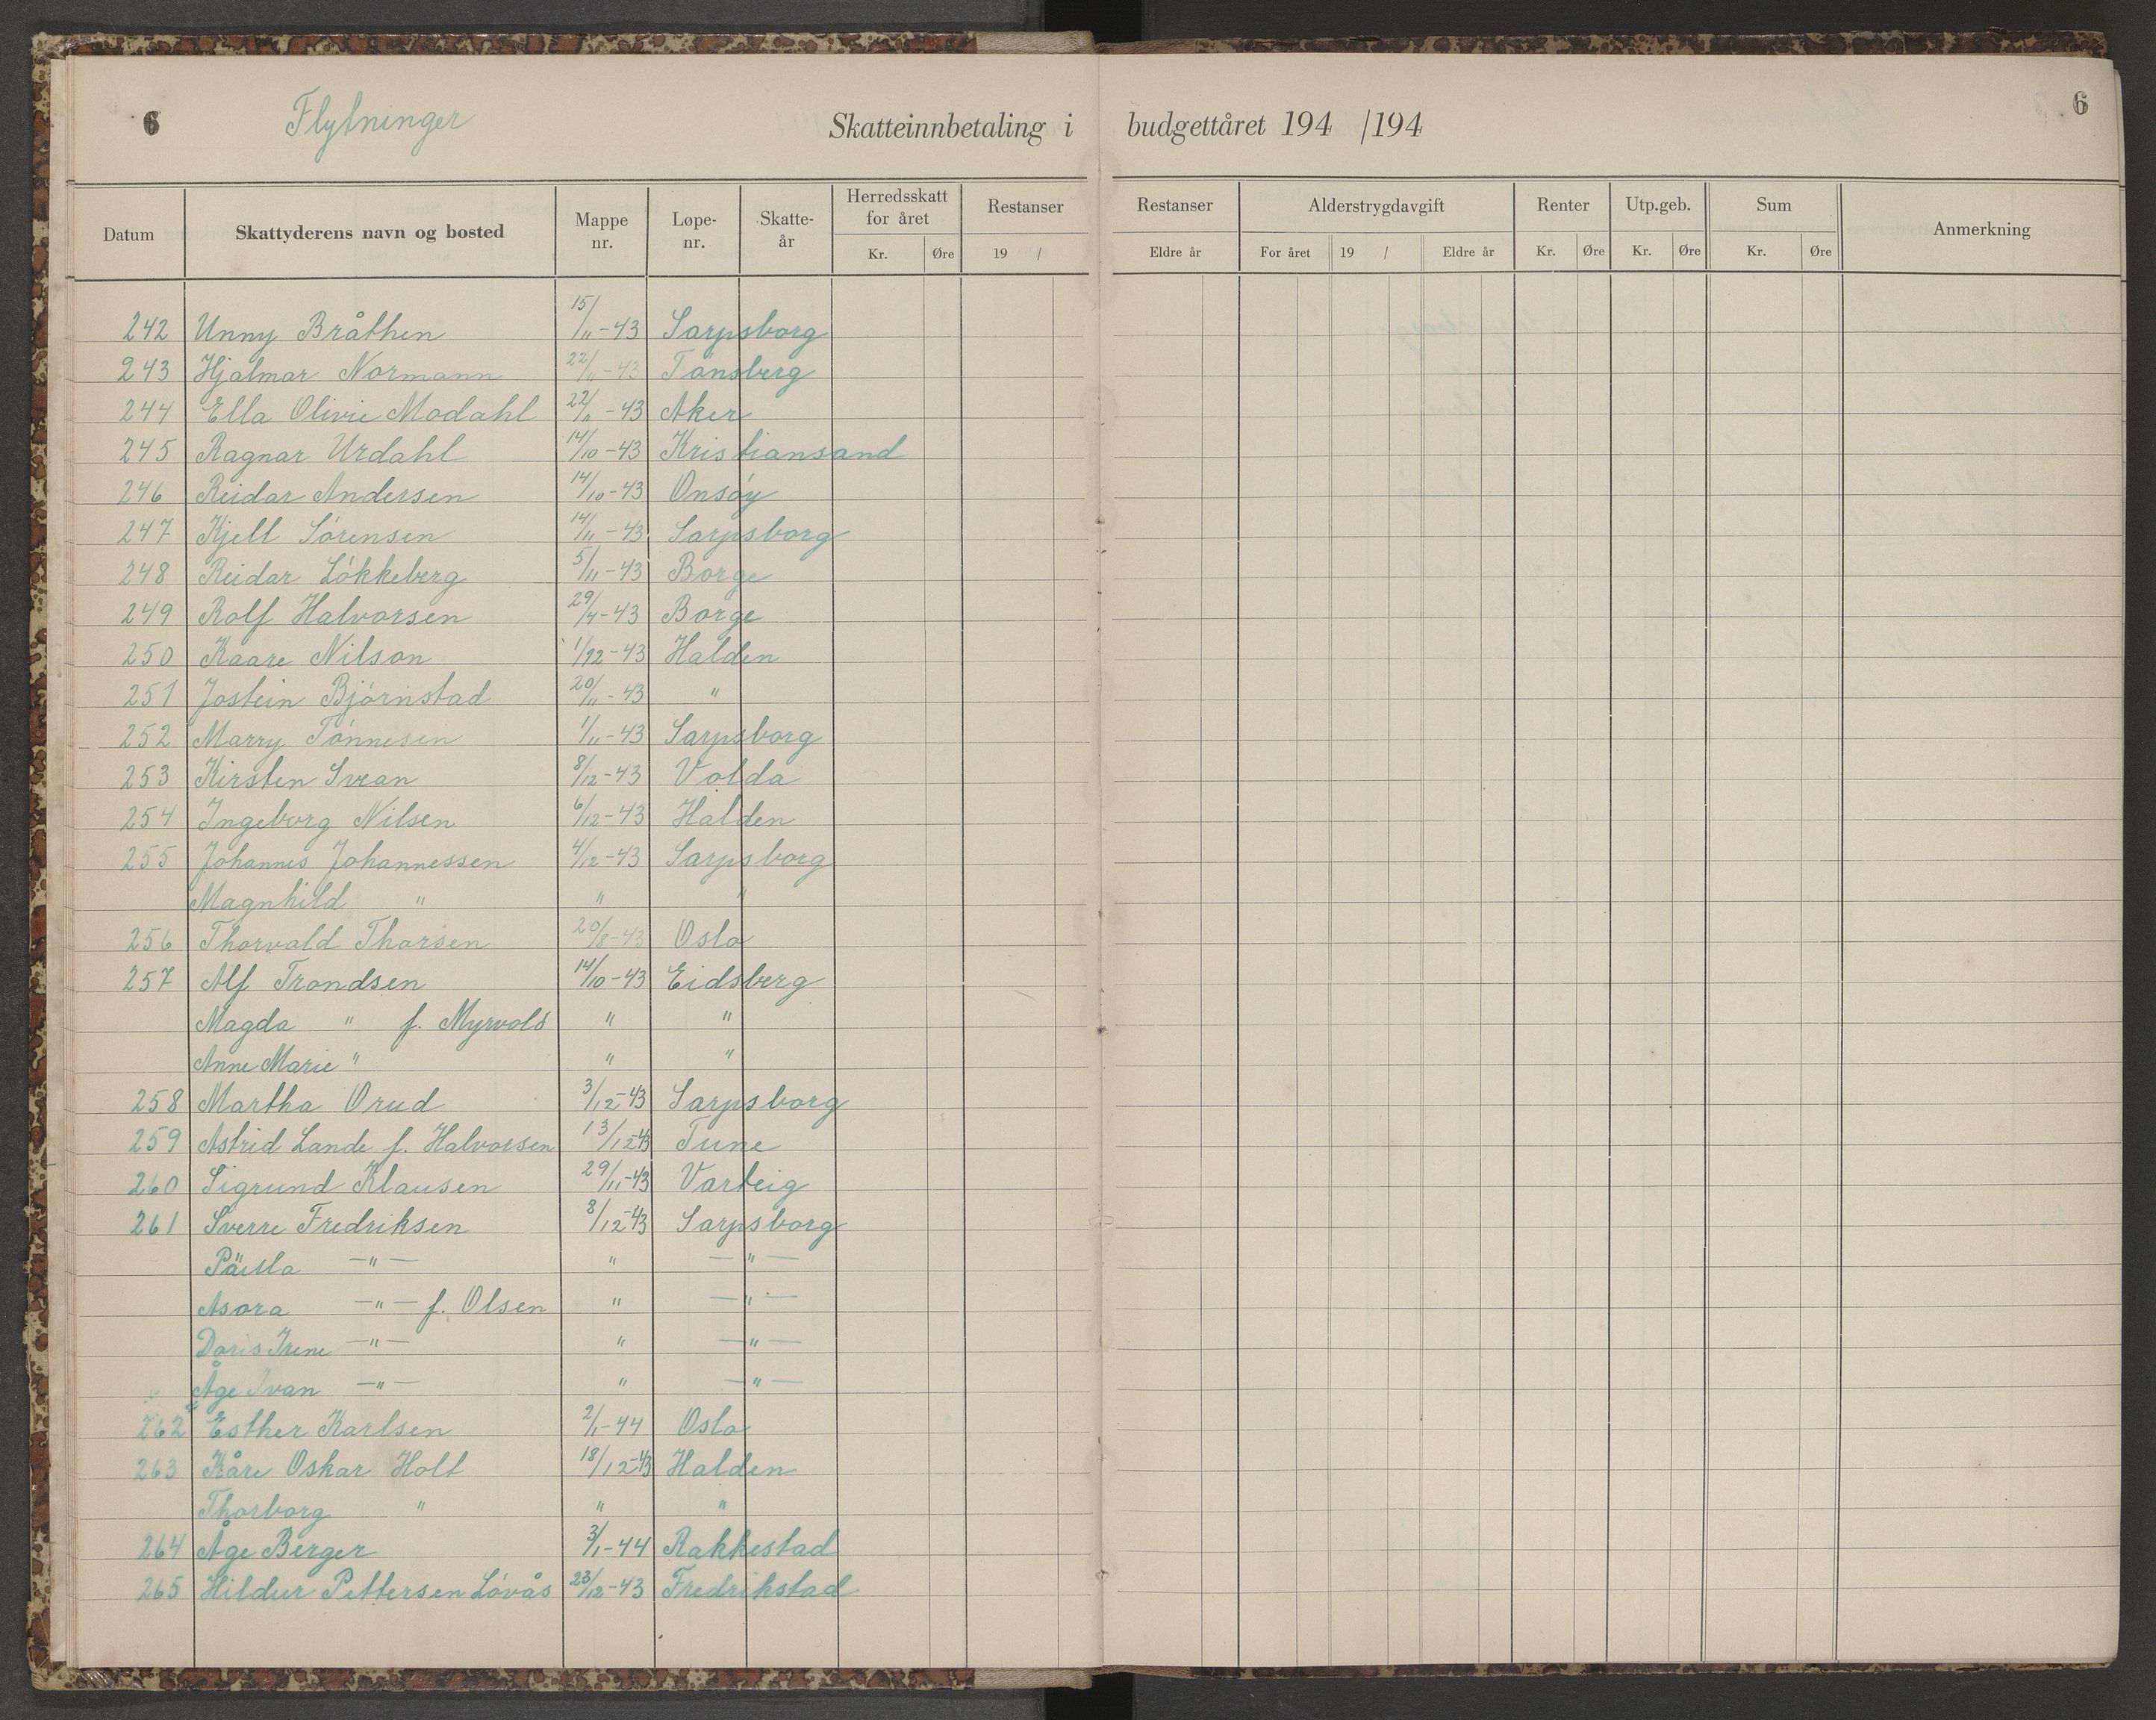 6 Flytninger Skatteinnbetaling i budgettåret 194 /194 6
Datum Skattyderens navn og bosted Mappe nr. Løpe-nr. Skatte-år Herredsskatt for året Kr. Øre Restanser 19 / Restanser Eldre år Alderstrygdavgift For året 19 / Eldre år Renter Kr. Øre Utp.geb. Kr. Øre Sum Kr. Øre Anmerkning
242 Unny Bråthen 15/11-43 Sarpsborg
243 Hjalmar Normann 22/11-43 Tønsberg
244 Ella Olivie Modahl 22/11-43 Aker
245 Ragnar Urdahl 14/10-43 Kristiansand
246 Reidar Andersen 14/10-43 Onsøy
247 Kjell Sørensen 14/11-43 Sarpsborg
248 Reidar Løkkeberg 5/11-43 Borge
249 Rolf Halvorsen 29/4-43 Borge
250 Kaare Nilson 1/12-43 Halden
251 Jostein Bjørnstad 20/11-43 "
252 Marry Tønnesen 1/11-43 Sarpsborg
253 Kirsten Svean 8/12-43 Volda
254 Ingeborg Nilsen 6/12-43 Halden
255 Johannes Johannessen 4/12-43 Sarpsborg
Magnhild " " "
256 Thorvald Thorsen 20/8-43 Oslo
257 Alf Trondsen 14/10-43 Eidsberg
Magda " f. Myrvold " "
Anne Marie " " "
258 Martha Orud 3/12-43 Sarpsborg
259 Astrid Lande f. Halvorsen 13/12-43 Tune
260 Sigrund Klausen 29/11-43 Varteig
261 Sverre Fredriksen 8/12-43 Sarpsborg
—"— " —"—
Asora —"— f. Olsen " —"—
Doris Irene —"— " —"—
Åge Ivan —"— " —"—
262 Esther Karlsen 2/1-44 Oslo
263 Kåre Oskar Holt 18/12-43 Halden
Thorborg " " "
264 Åge Berger 3/1-44 Rakkestad
265 Hildur Pettersen Løvås 23/12-43 Fredrikstad